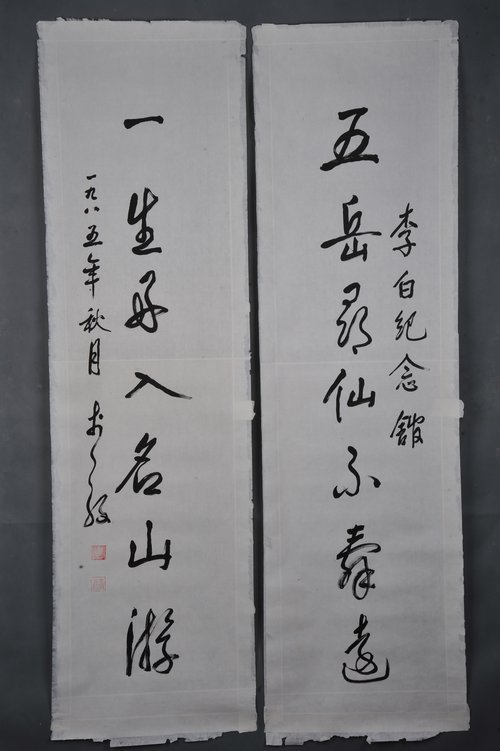 李白纪念館
五岳尋仙不辭遠
一生好入名山游
一九八五年秋月